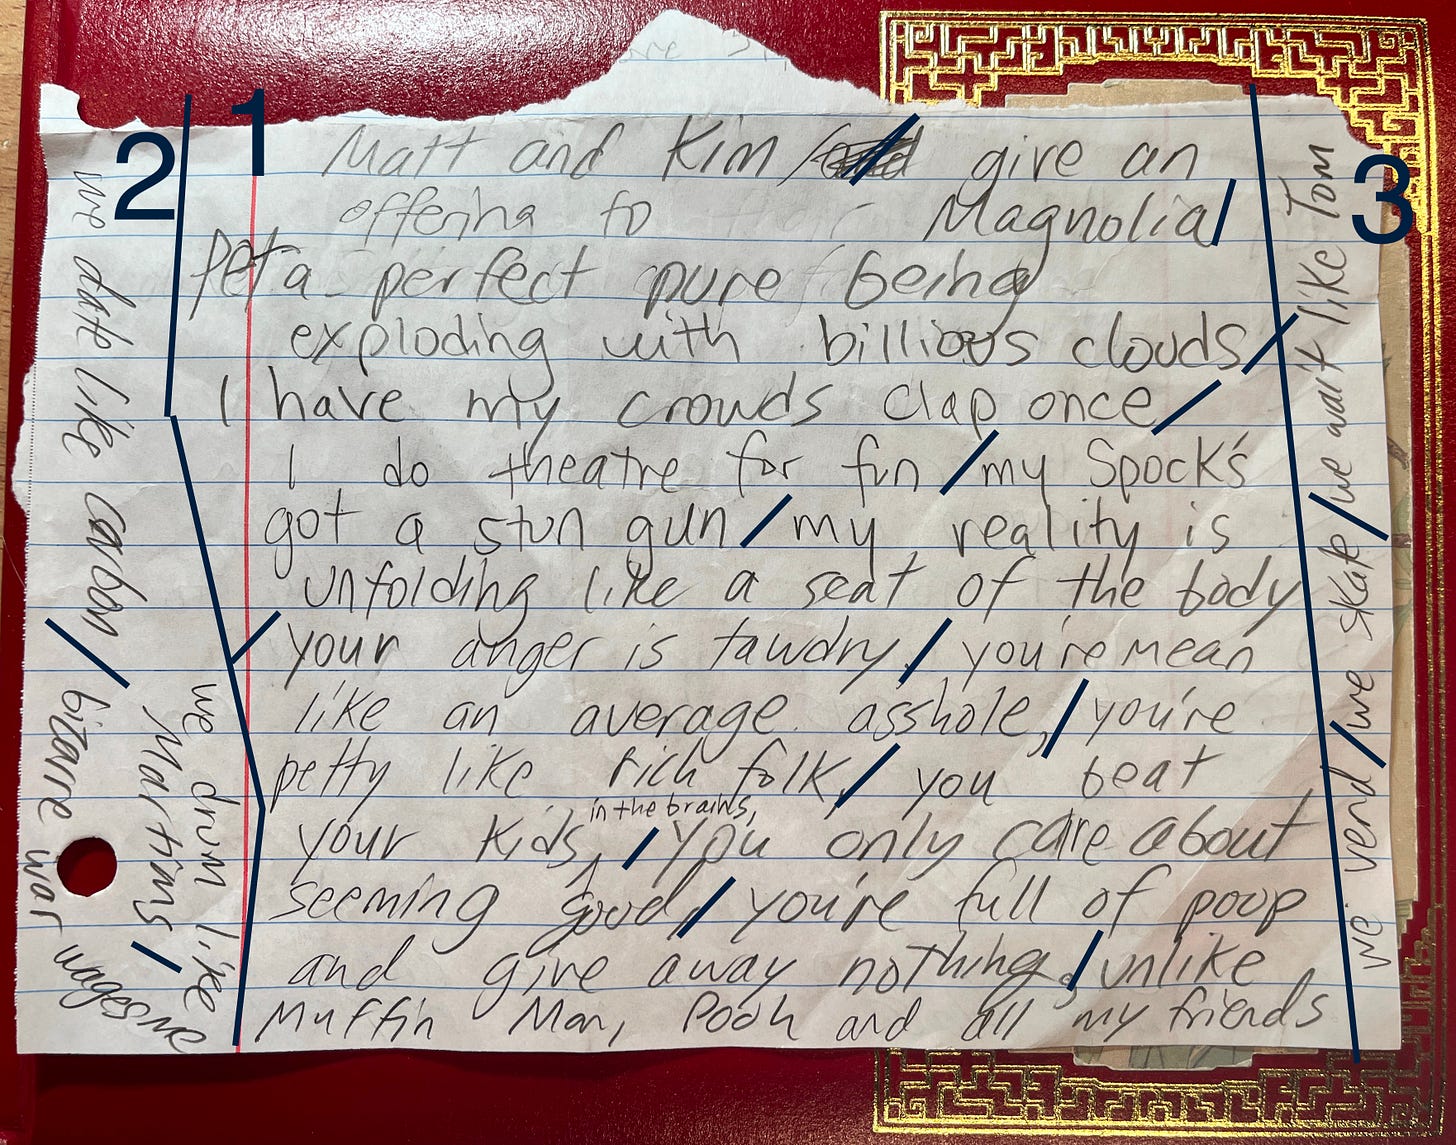 1
Matt and Kim / give an
offering to Magnolia/
Pet a perfect pure being
exploding with billious clouds/
I have my crowds clap once/
I do theatre for fun / my Spock's
got a stun gun / my reality is
unfolding like a seat of the body
/ your anger is tawdry, / you're mean
like an average asshole, / you're
petty like rich folk, / you beat
your kids, in the brains, / you only care about
seeming good, / you're full of poop
and give away nothing, / unlike
Muffin Man, Pooh and all my friends
2
we drum like
Martins /
we date like carbon / bizarre war wages
3
we vend / we skate / we wait like Tom